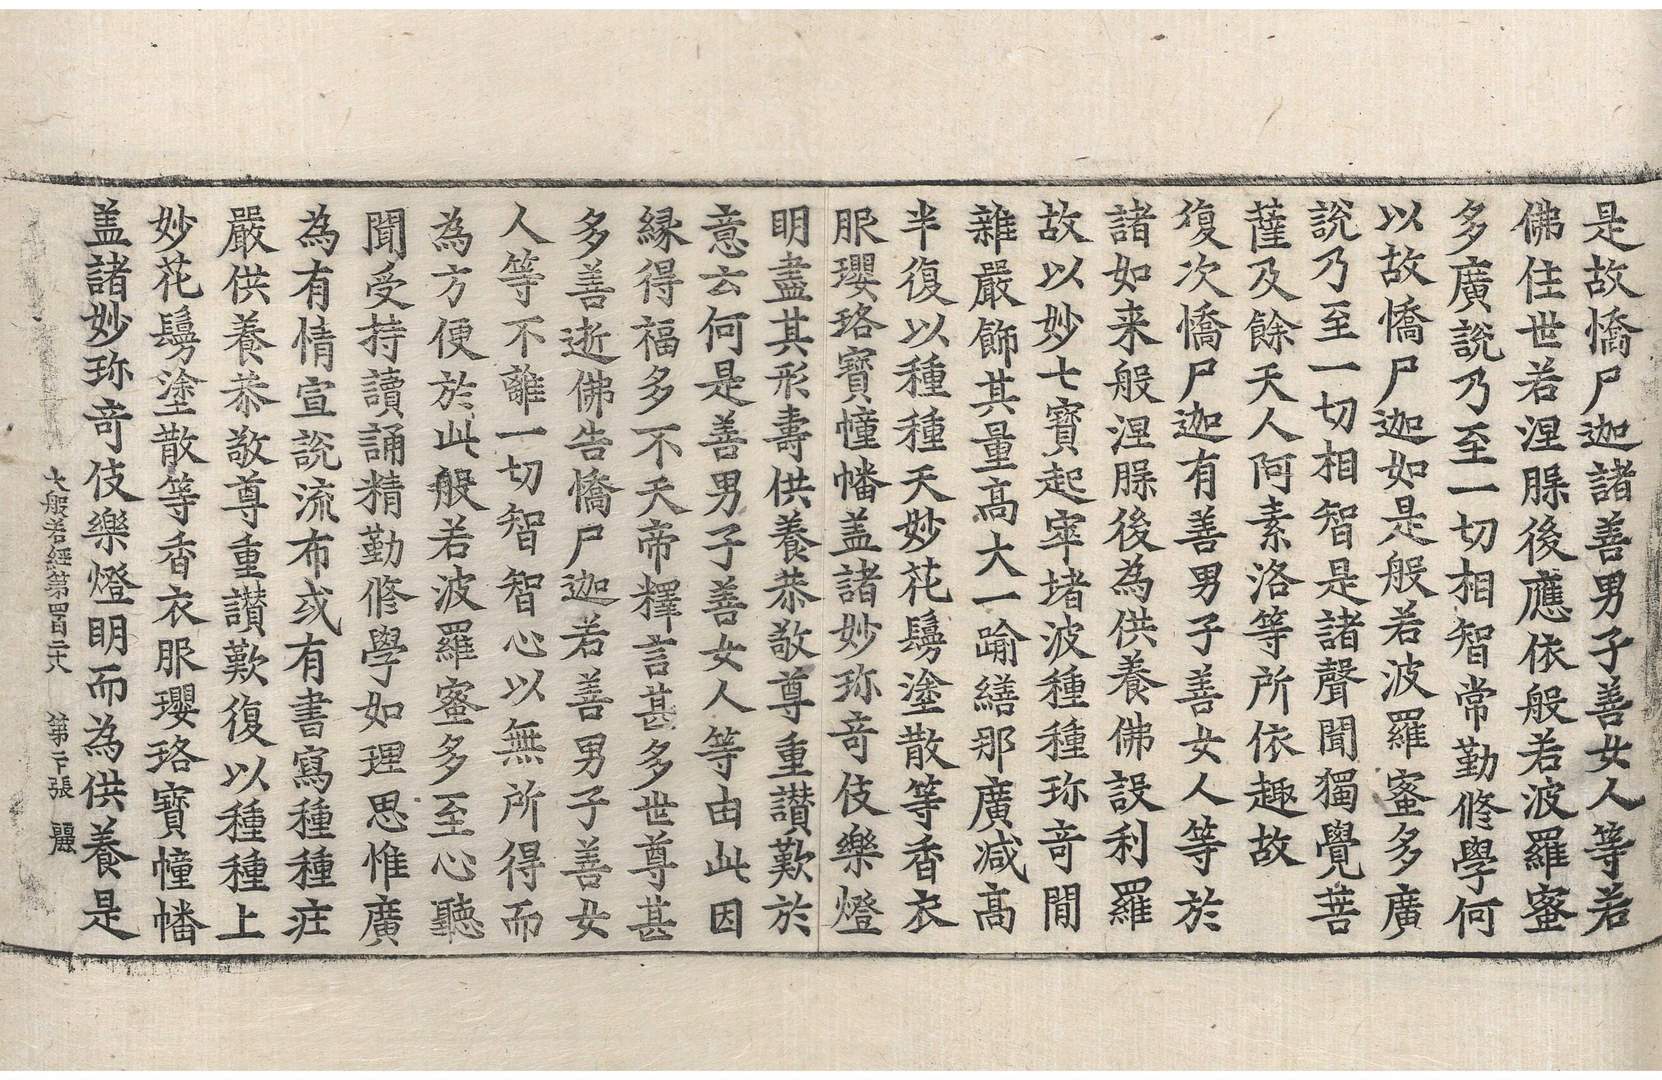 是故憍尸迦諸善男子善女人等若
佛住世若涅槃後應依般若波羅蜜
多廣說乃至一切相智常勤修學何
以故憍尸迦如是般若波羅蜜多廣
說乃至一切相智是諸聲聞獨覺菩
薩及餘天人阿素洛等所依趣故
復次憍尸迦有善男子善女人等於
諸如来般涅槃後為供養佛設利羅
故以妙七寶起窣堵波種種珎竒閒
雜嚴飾其量高大一踰繕那廣減高
半復以種種天妙花鬘塗散等香衣
服瓔珞寶幢幡盖諸妙珎竒伎樂燈
明盡其形壽供養恭敬尊重讃歎於
意云何是善男子善女人等由此因
縁得福多不天帝釋言甚多世尊甚
多善逝佛告憍尸迦若善男子善女
人等不離一切智智心以無所得而
為方便於此般若波羅蜜多至心聽
聞受持讀誦精勤修學如理思惟廣
為有情宣說流布或有書寫種種莊
嚴供養恭敬尊重讃歎復以種種上
妙花鬘塗散等香衣服瓔珞寶幢幡
盖諸妙珎竒伎樂燈明而為供養是
大般若經第四百二十八 第二十張 麗